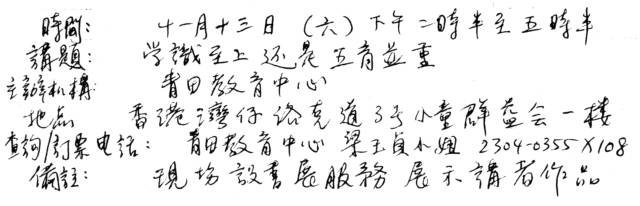 時間： 十一月十三日（六）下午二時半至五時半
講題： 学識至上还是五育並重
主辦机構 青田教育中心
地点 香港灣仔洛克道3号小童群益会一楼
查詢/訂票电话： 青田教育中心 梁玉貞小姐 2304-0355X108
備註： 現场設書展服務 展示講者作品